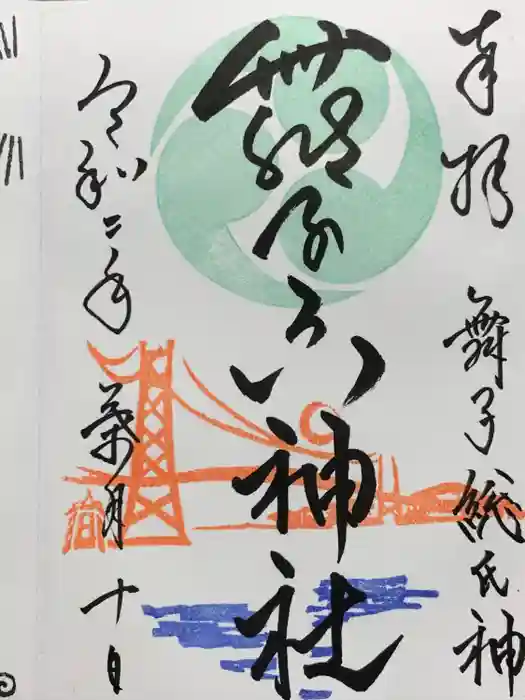 奉拝 舞子総氏神
舞子六神社
令和二年 葉月 十日